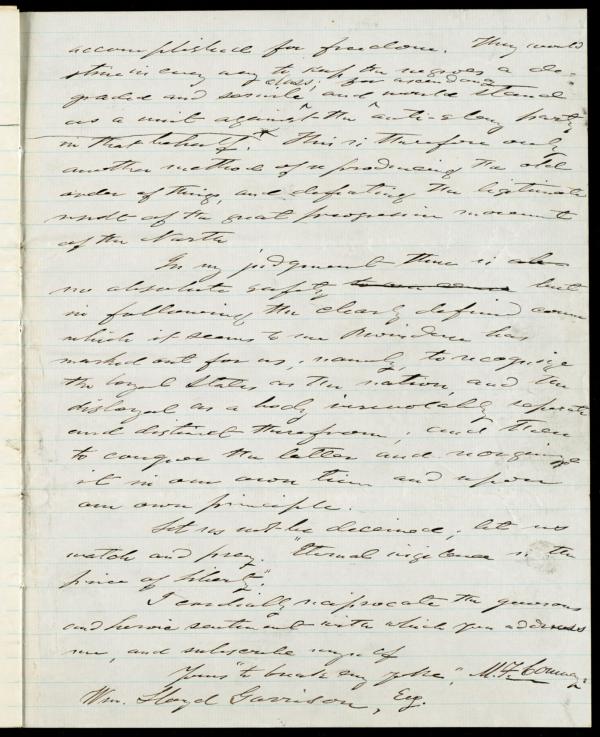 accomplished for freedom. They would
strive in every way to keep the negroes a de-
class; ascendancy
graded and servile and would stand
as a unit against the anti-slavery party
in that behalf.* This is therefore only
another method of reproducing the old
order of things, and defeating the legitimate
result of the great progressive movement
of the North
In my judgment there is
no absolute safety but
in following the clearly defined course
which it seems to me Providence has
marked out for us, namely, to recognize
the loyal States as the nation, and the
disloyal as a body irrevocably separate
and distinct therefrom; and then
to conquer the latter and reorganize
it in our own time and upon
our own principle.
Let us not be deceived, let us
watch and pray. "Eternal vigilance is the
price of liberty."
I cordially reciprocate the generous
and heroic sentiment with which you address
me, and subscribe myself
Yours "to break every yoke," M. F. Conway.
Wm. Lloyd Garrison, Esq.